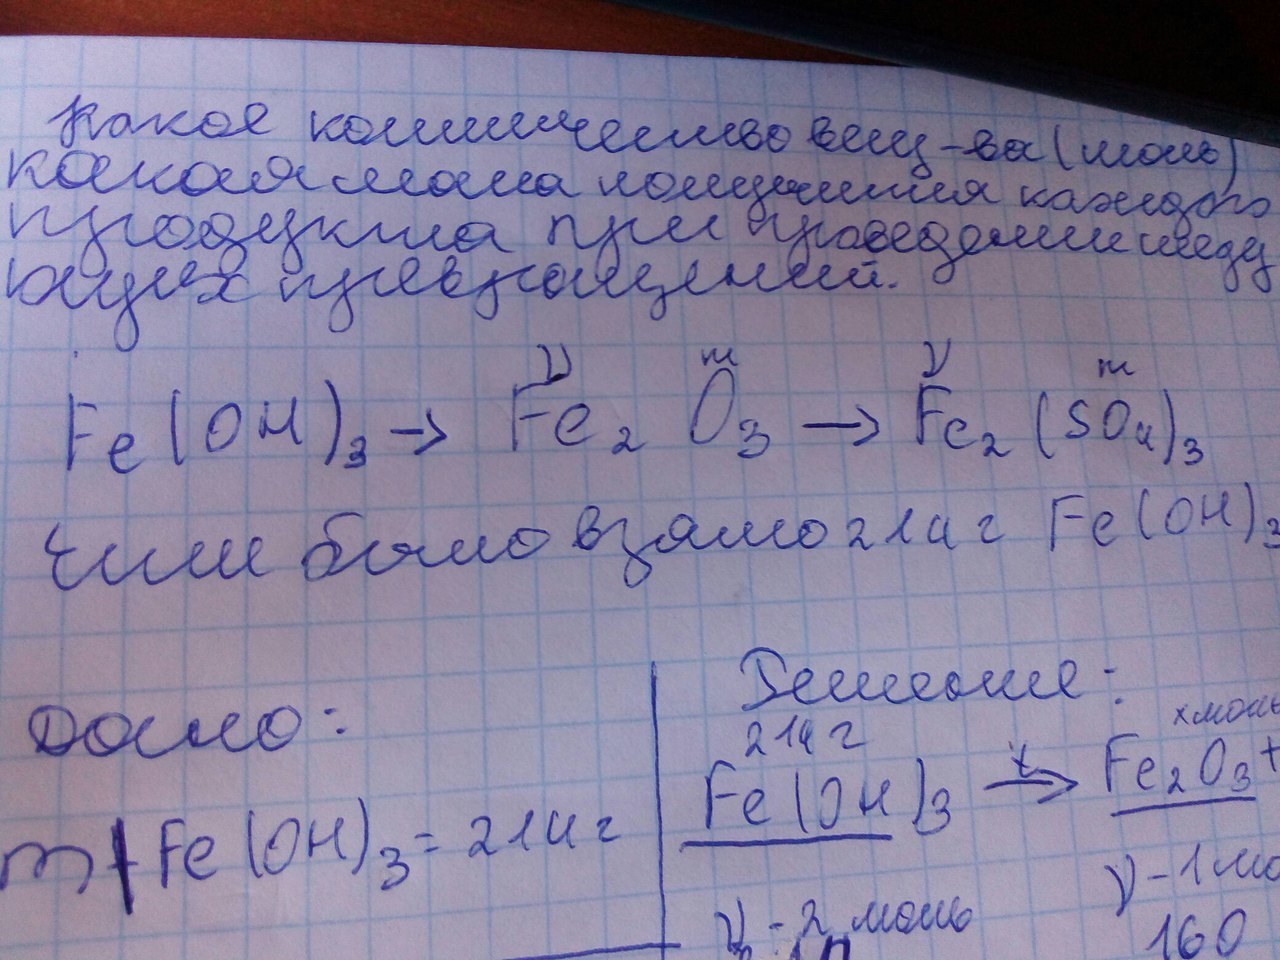 Какое количество вещ-ва (моль)
какая масса получится каждого
продукта при проведении следу
ющих превращений.
ν m ν m
Fe(OH)₃ → Fe₂O₃ → Fe₂(SO₄)₃
Если было взято 214 г Fe(OH)₃
Дано:
m Fe(OH)₃ = 214 г
Решение:
214 г х моль
Fe(OH)₃ t→ Fe₂O₃ +
ν - 2 моль ν - 1 мо
160